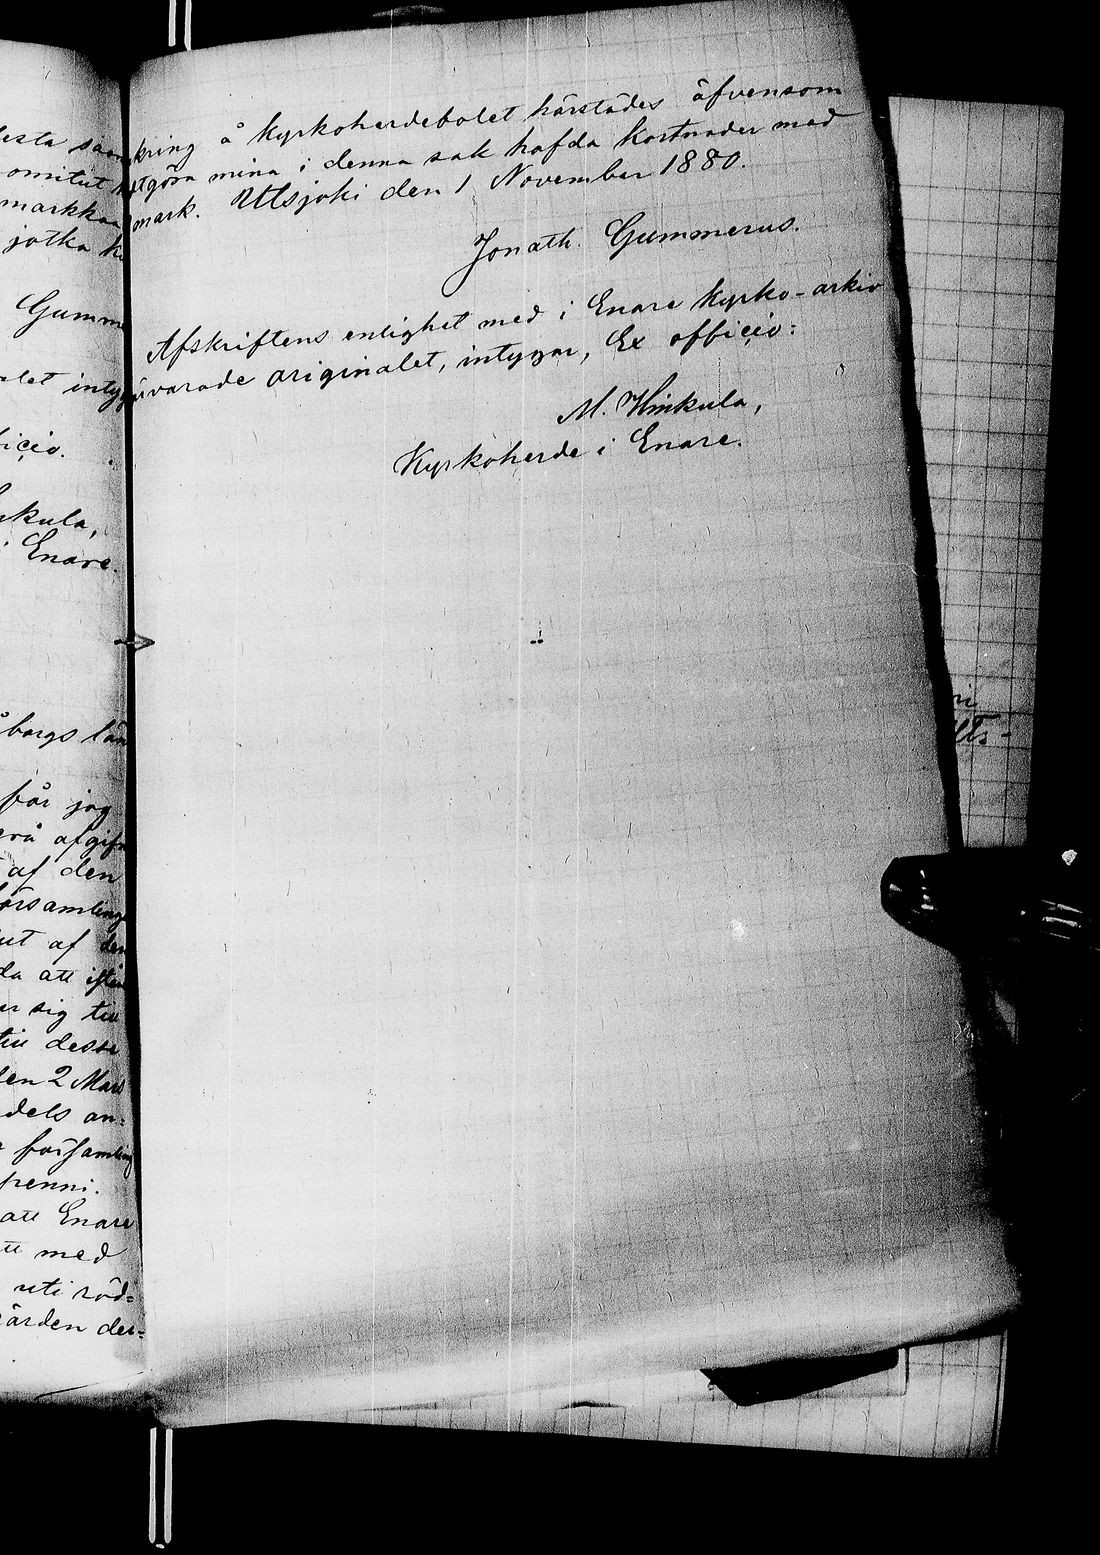 esta
omitut
markkaa
jotka
Gumme
alet intygar
ficio.
kula,
i Enare.
åborgs län
får jag
afgift
af den
församlings
ut af den
da att
er sig till
till dess
den 2 Mars
dels an=
församling
penni.
att Enare
tt med
uti röd=
gården der=
kring å kyrkoherdebolet härstädes äfvensom
utgöra mina i denna sak hafda kostnader med
mark. Utsjoki den 1 November 1880.
Jonath. Gummerus.
Afskriftens enlighet med i Enare kyrko-arkiv
förvarade originalet, intygar, Ex officio:
M. Hinkula,
Kyrkoherde i Enare.